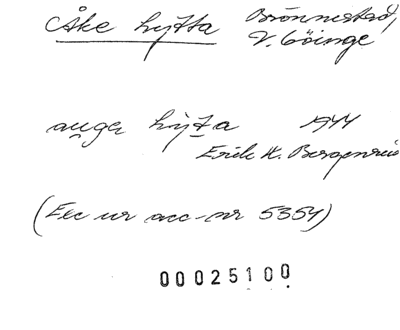 Åke hytta Brönnestad,
V. Göinge
auga hyta 1944
Erik K. Bergenreu
(Exc ur acc-nr 5354)
00025100